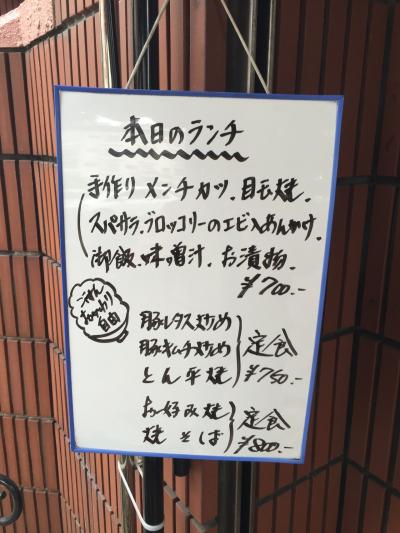 本日のランチ
手作りメンチカツ、目玉焼、
スパサラ、ブロッコリーのエビ入あんかけ、
御飯、味噌汁、お漬物、
¥700.-
ごはん
おかわり
自由
豚レタス炒め
豚キムチ炒め
とん平焼
定食
¥750.-
お好み焼
焼そば
定食
¥800.-